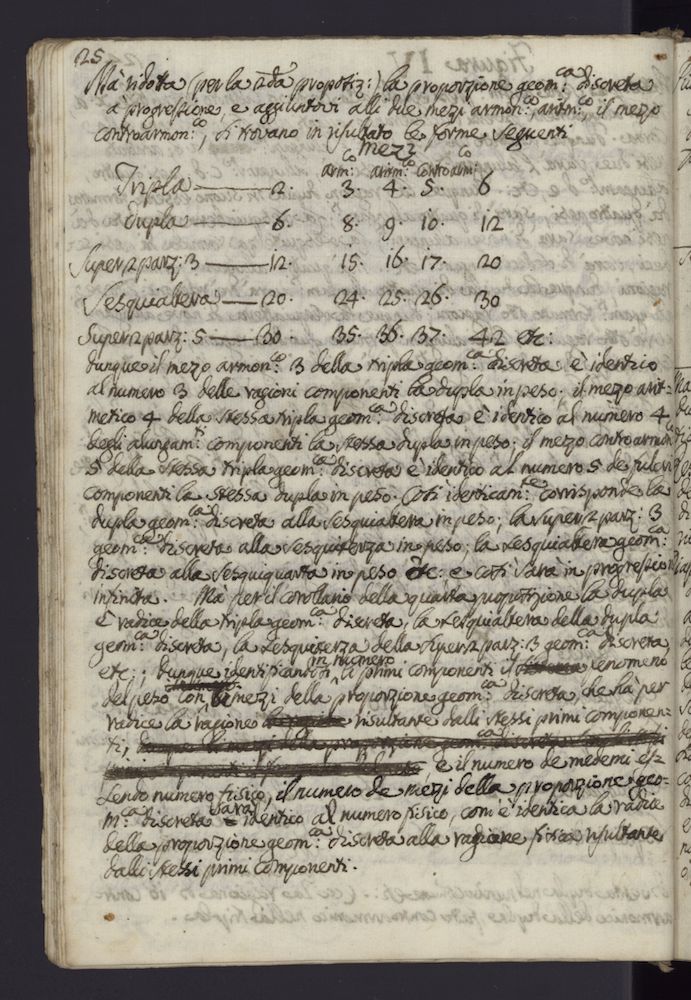 25
Mà ridotta (per la 2da propotiz:) la proporzione geom:ca discreta
a progressione, e aggiuntovi alli due mezi armon:co, aritm:co, il mezo
controarmon:co, si trovano in risultato le forme seguenti
mezi
arm:co aritm:co controarm:co
Tripla — 2. 3. 4. 5. 6
Dupla — 6. 8. 9. 10. 12
Super2parz: 3 — 12. 15. 16. 17. 20
Sesquialtera — 20. 24. 25. 26. 30
Super2parz: 5 — 30. 35. 36. 37. 42 etc:
dunque il mezo armon:co 3 della tripla geom:ca discreta è identico
al numero 3 delle ragioni componenti la dupla in peso. il mezo arit=
metico 4 della stessa tripla geom:ca discreta è identico al numero 4
degli alungam:ti componenti la stessa dupla in peso; il mezo controarmon:co
5 della stessa tripla geom:ca discreta è identico al numero 5 de
componenti la stessa dupla in peso. Così identicam:te corrisponde la
dupla geom:ca discreta alla sesquialtera in peso; la super2parz: 3
geom:ca discreta alla sesquiterza in peso; la sesquialtera geom:ca
discreta alla sesquiquarta in peso etc: e così sarà in progressione
infinita. Ma per il corollario della quarta propotizione la dupla
è radice della tripla geom:ca discreta, la sesquialtera della dupla
geom:ca discreta, la sesquiterza della super2parz: 3 geom:ca discreta,
etc:; dunque identificandoti in numero li primi componenti il fenomeno
del peso con li mezi della proporzione geom:ca discreta, che hà per
radice la ragione risultante dalli stessi primi componen=
ti; e il numero de medemi es=
sendo numero fisico, il numero de mezi della proporzione geo=
m:ca discreta sarà identico al numero fisico, com'è identica la radice
della proporzione geom:ca discreta alla ragione fisica risultante
dalli stessi primi componenti.